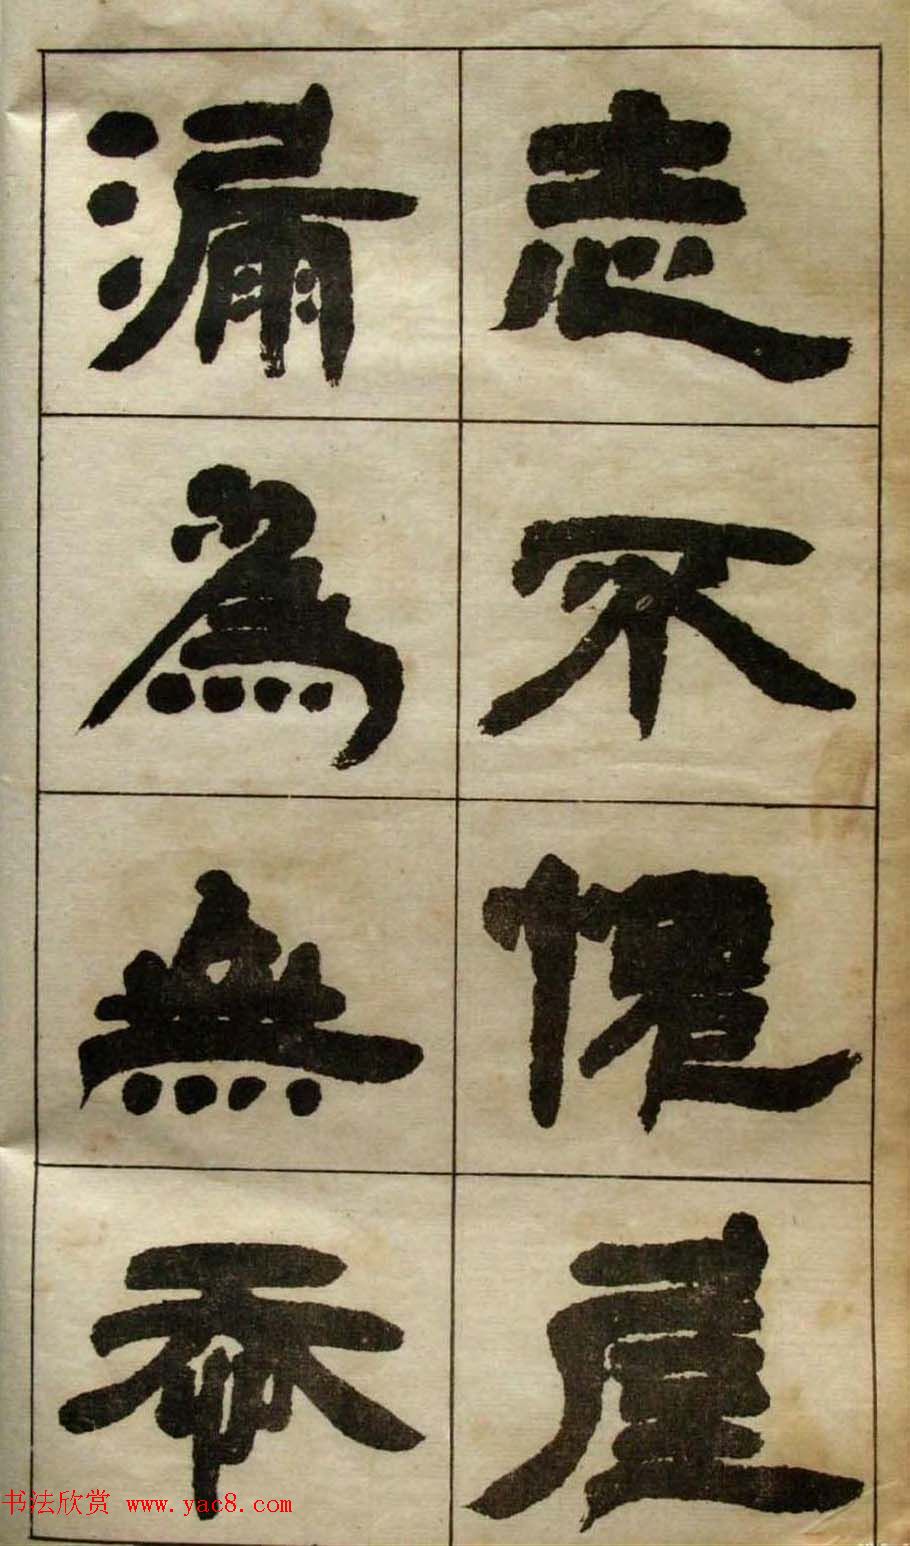 志不愧屋
漏為無忝
书法欣赏 www.yac8.com